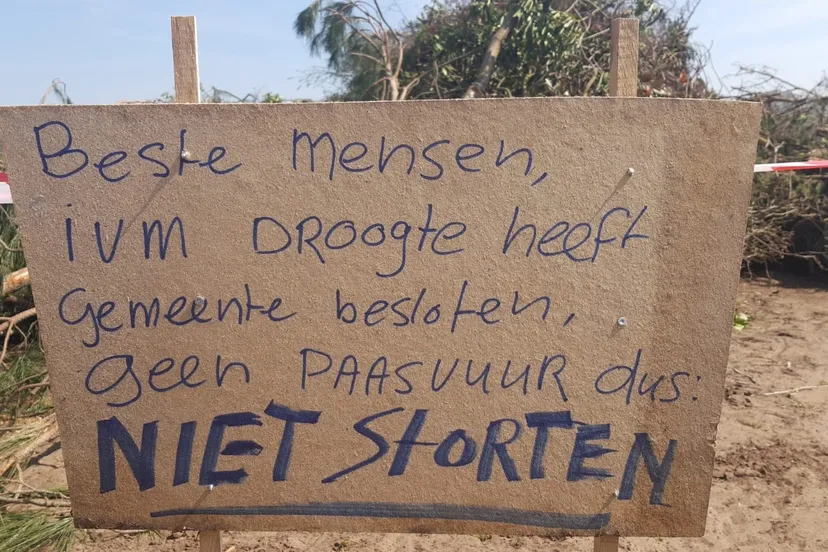 Beste mensen,
ivm DROogte heeft
gemeente besloten,
geen PAASVUUR dus:
NIET StORTEN